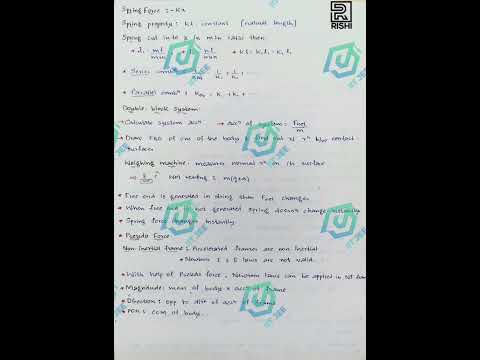 Spring Force : -Kx
RISHI
Spring property : Kl = constant (natural length)
Spring cut into 2 in m:n ratio then
l₁ = ml/m+n
nl/m+n
Kl = K₁l₁ = K₂l₂
Series combⁿ
Parallel combⁿ : Keq = K₁ + K₂ +
Double block system:
Calculate system accⁿ → accⁿ of system = Fnet/m
Draw FBD of one of the body & find out
contact
surface
Weighing machine: measures normal rⁿ on its surface
reading = m(g±a)
Free end is generated in doing then Fnet changes
When free end is not generated spring doesn't change instantly
Spring force changes instantly
Pseudo Force
Non-inertial frame : Accelerated frames are non inertial
Newtons I & II laws are not valid.
With help of Pseudo force, Newtons laws can be applied in
Magnitude: mass of body x accⁿ of frame
Direction: opp to dirⁿ of accⁿ of frame
POA: COM of body...
IIT JEE